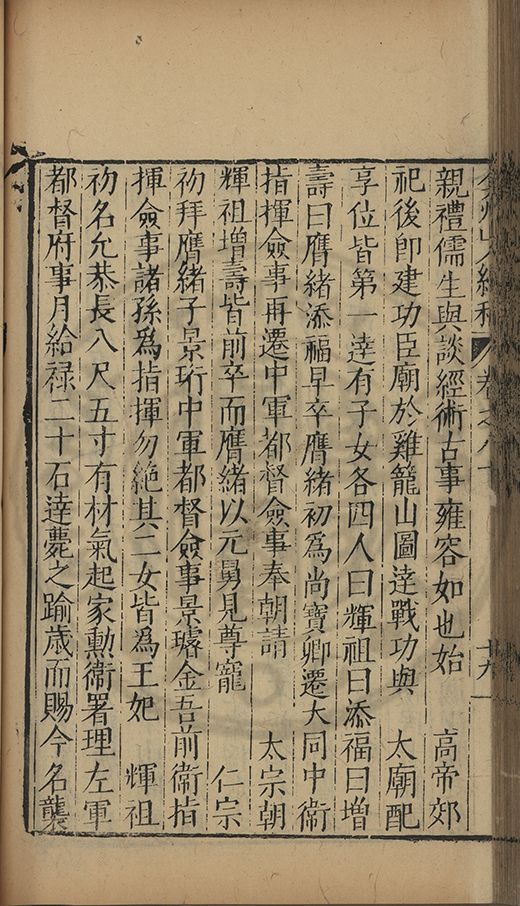 弇州山人續稿 卷之八十 十九
親禮儒生與談經術古事雍容如也始 高帝郊
祀後卽建功臣廟於雞籠山圖達戰功與 太廟配
享位皆第一達有子女各四人曰輝祖曰添福曰增
壽曰膺緒添福早卒膺緒初爲尚寶卿遷大同中衛
指揮僉事再遷中軍都督僉事奉朝請 太宗朝
輝祖增壽皆前卒而膺緒以元舅見尊寵 仁宗
初拜膺緒子景珩中軍都督僉事景璿金吾前衛指
揮僉事諸孫爲指揮勿絕其二女皆爲王妃 輝祖
初名允恭長八尺五寸有材氣起家勳衛署理左軍
都督府事月給祿二十石達薨之踰歲而賜今名襲